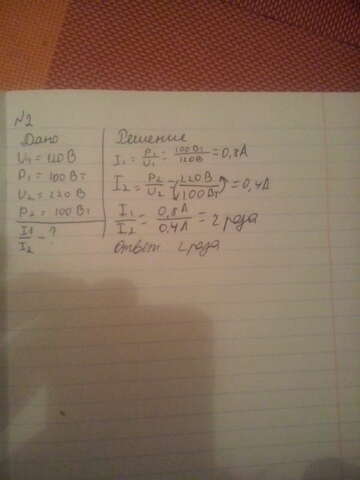 №2
Дано
U₁ = 120 В
P₁ = 100 Вт
U₂ = 220 В
P₂ = 100 Вт
I₁/I₂ - ?
Решение
I₁ = P₁/U₁ = 100Вт/120В = 0,8А
I₂ = P₂/U₂ = 220В/100Вт = 0,4А
I₁/I₂ = 0,8А/0,4А = 2 раза
ответ 2 раза